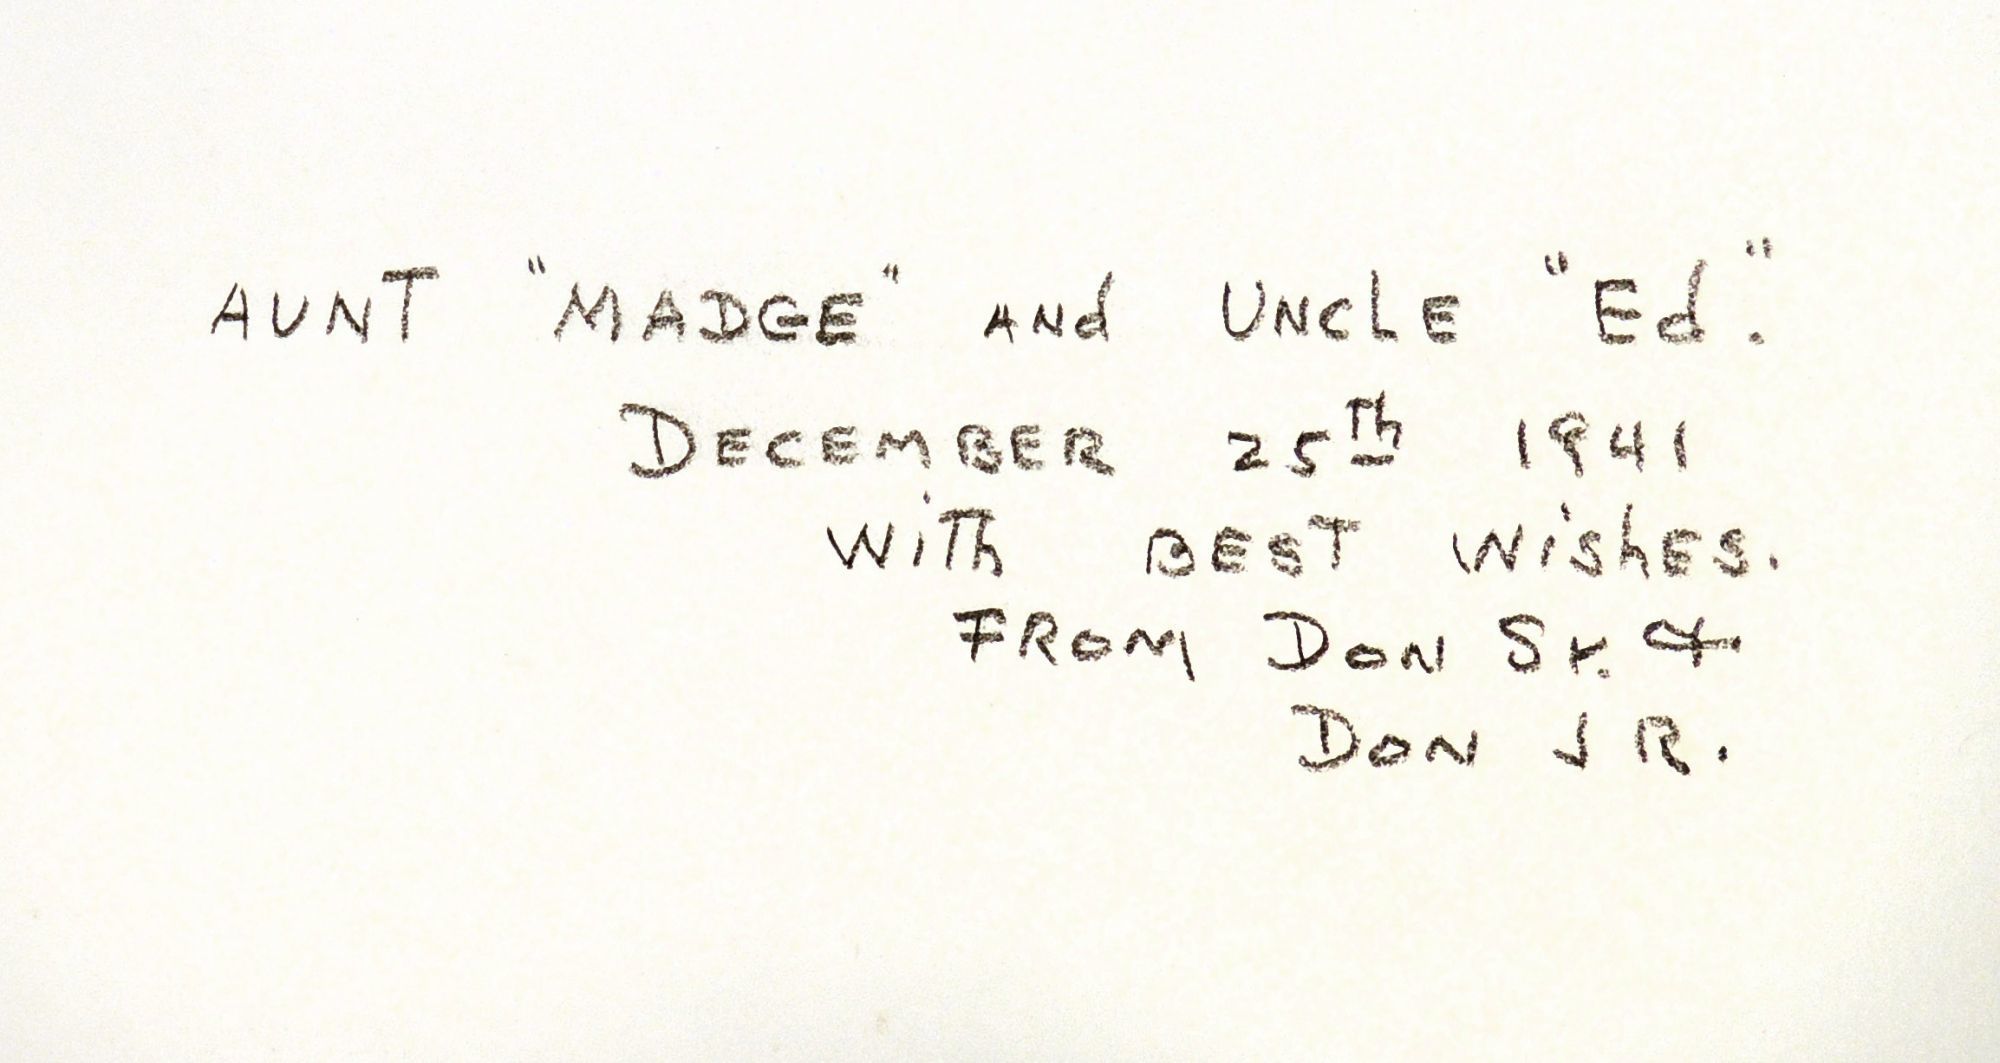 AUNT "MADGE" ANd UNClE "Ed".
DECEMBER 25Th 1941
WiTh BEST WishES.
FROM DON Sr. &
DON JR.